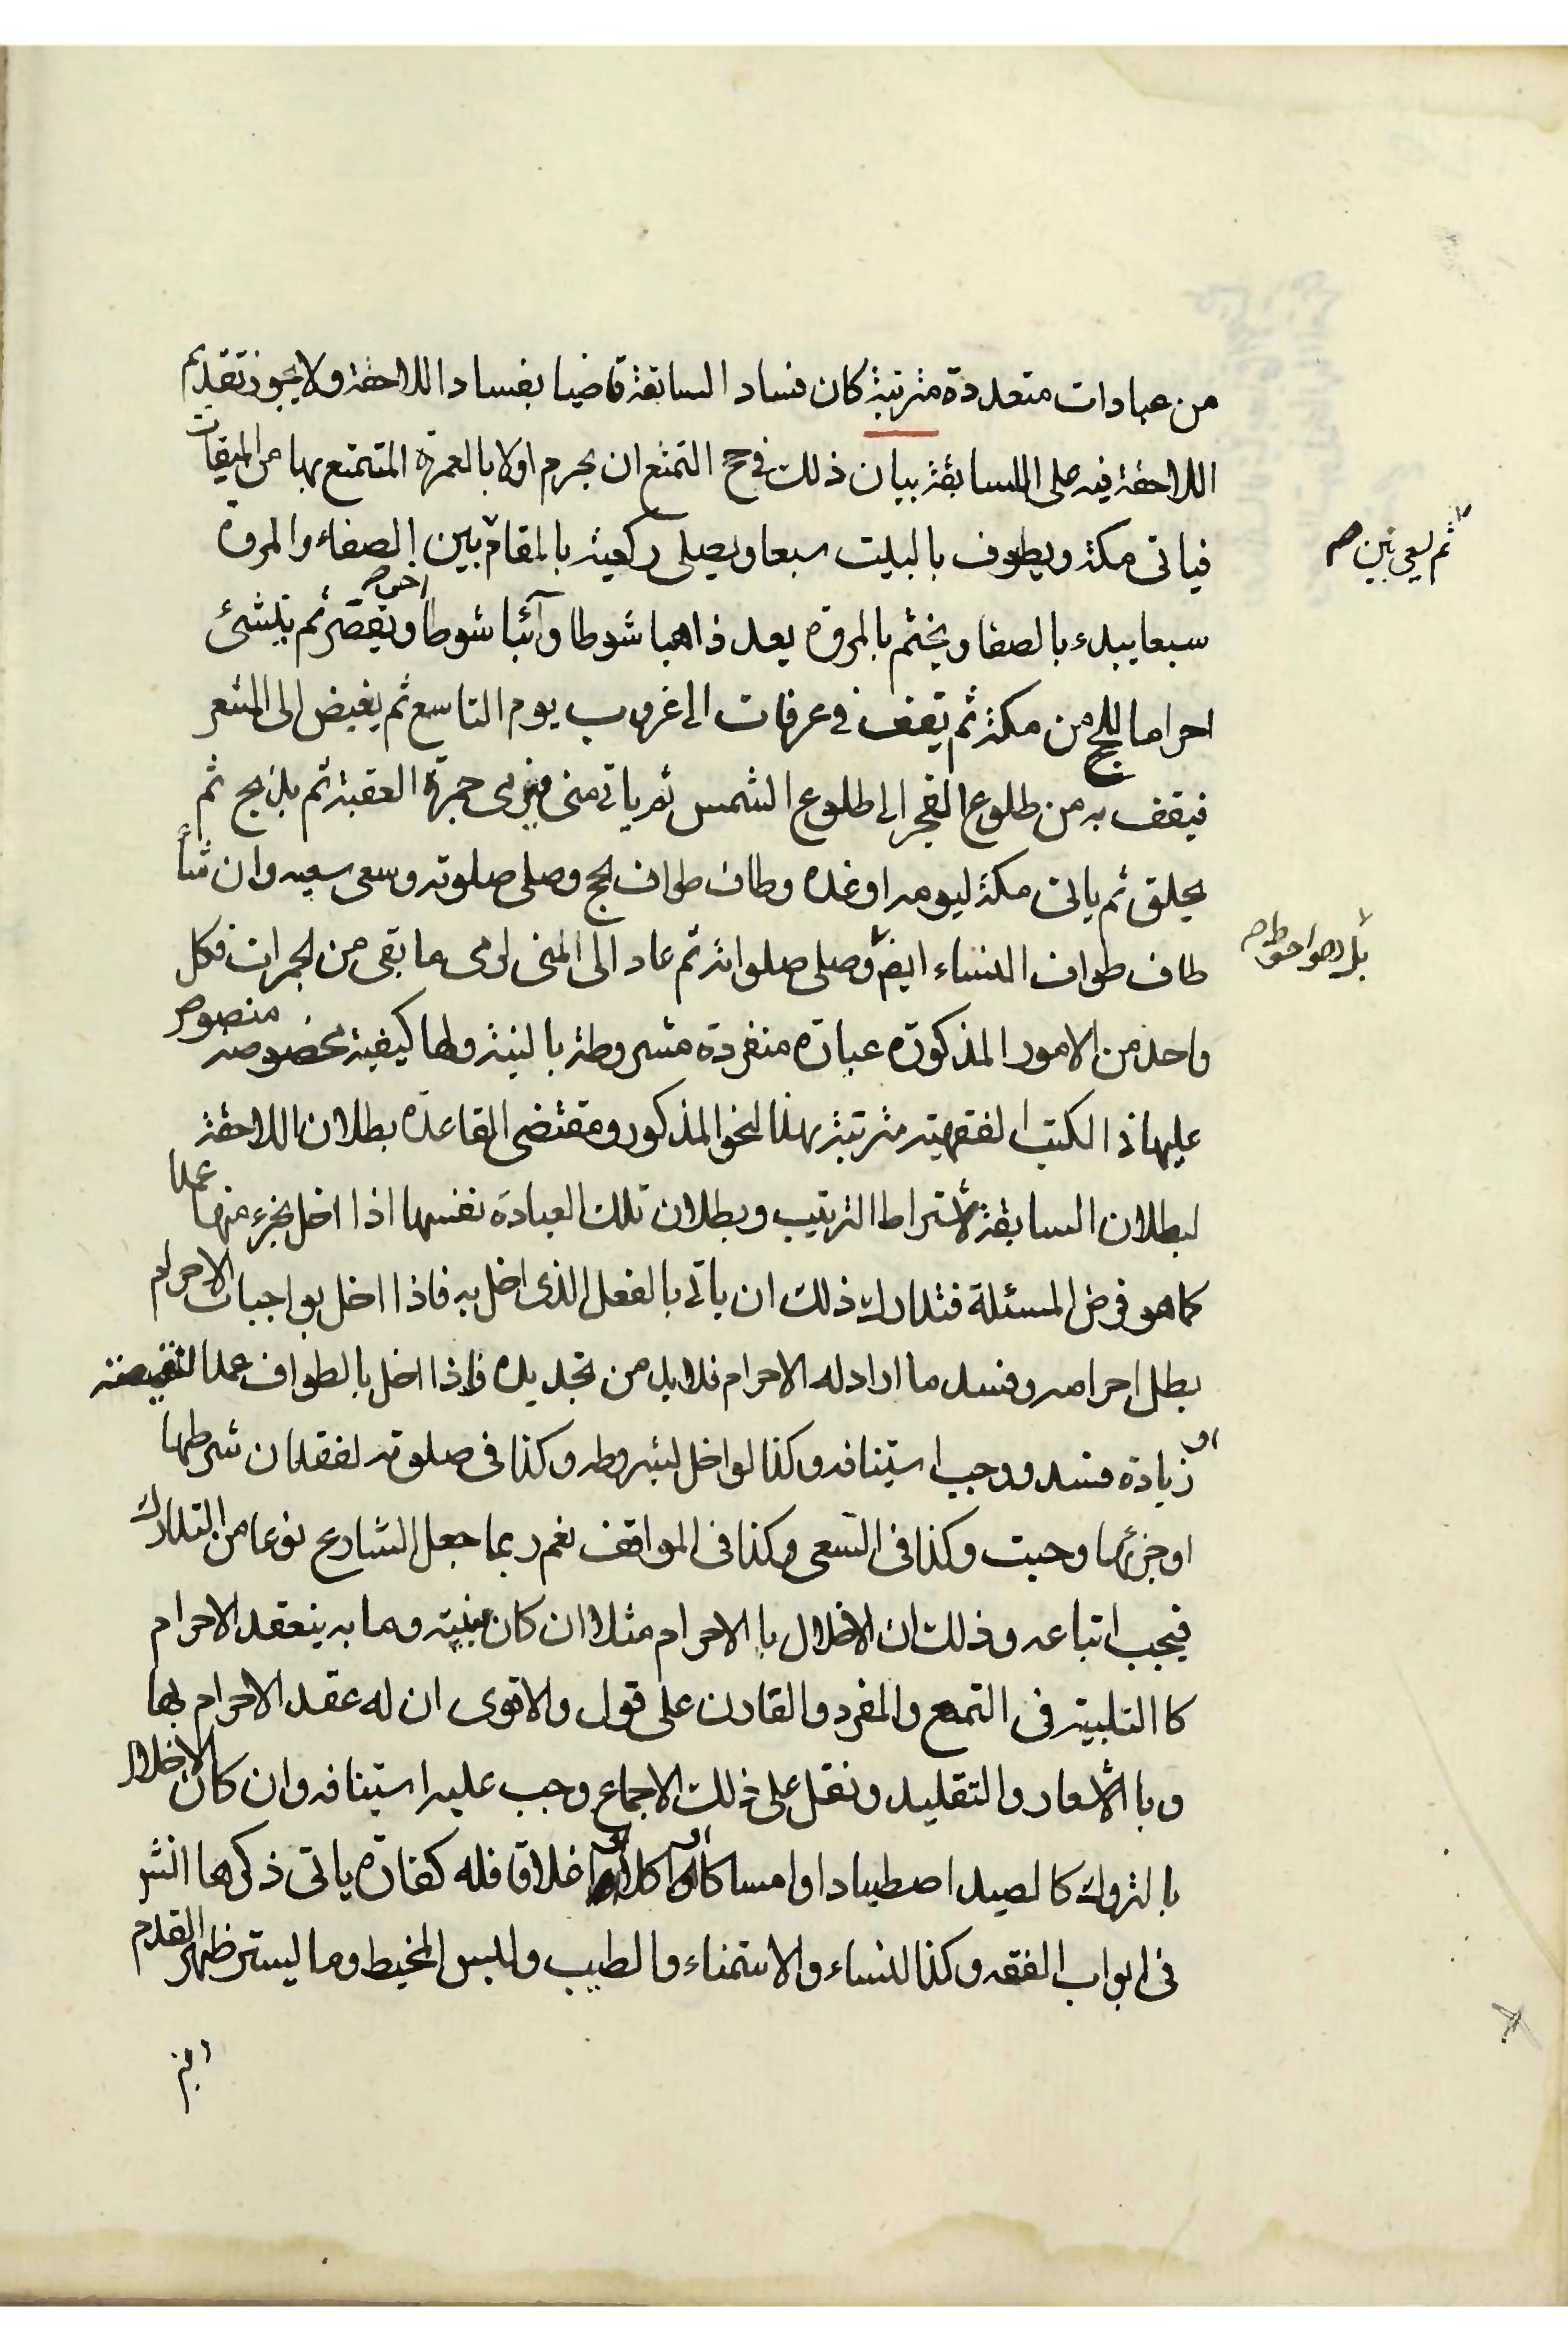 من عبادات متعددة مترتبة كان فساد السابقة قاضيا بفساد اللاحقة ولا يجوز تقديم
اللاحقة فيه على السابقة بيان ذلك في حج التمتع ان يحرم اولا بالعمرة المتمتع بها من الميقات
فياتى مكة ويطوف بالبيت سبعا ويصلى ركعيته بالمقام بين الصفاء والمروة
ثم يسعى بين صح
سبعا يبدء بالصفا ويختم بالمروة يعد ذاهبا شوطا وآئبا شوطا اخر ويقصر ثم ينشئ
احراما للحج من مكة ثم يقف في عرفات الى غروب يوم التاسع ثم يفيض الى المشعر
فيقف به من طلوع الفجر الى طلوع الشمس ثم ياتي منى فيرمى جمرة العقبة ثم يذبح ثم
يحلق ثم ياتى مكة ليومه او غده وطاف طواف الحج وصلى صلوته وسعى سعيه وان شاء
طاف طواف النساء ايضا وصلى صلواته ثم عاد الى المنى لرمى ما بقى من الجمرات فكل
بل هو احوط صح
واحد من الامور المذكورة عبادة منفردة مشروطة بالنية ولها كيفية مخصوصه منصوص
عليها في الكتب الفقهيته مترتبة بهذا النحو المذكور ومقتضى القاعدة بطلان اللاحقة
لبطلان السابقة لاشتراط الترتيب وبطلان تلك العبادة نفسها اذا اخل بجزء منها عمدا
كما هو فرض المسئلة فتدارك ذلك ان ياتي بالفعل الذى اخل به فاذا اخل بواجبات الاحرام
بطل احرامه وفسد ما اراد له الاحرام فلا بد من تجديده واذا اخل بالطواف عمدا لنقيصة
او زيادة فسد ووجب استينافه وكذا لو اخل بشروطه وكذا في صلوته لفقدان شرطها
او جزئها وجبت وكذا في السعى وكذا في المواقف نعم ربما جعل الشارع نوعا من التدارك
فيجب اتباعه وذلك ان الاخلال بالاحرام مثلا ان كان بنيته وما به ينعقد الاحرام
كا التلبية في التمتع والمفرد والقارن على قول والاقوى ان له عقد الاحرام بها
وبا الاشعار والتقليد ونقل على ذلك الاجماع وجب عليه استينافه وان كان الاخلال
بالتروك كالصيد اصطيادا وامساكا او اكلا او اغلاقا فله كفارة ياتى ذكرها انشر
في ابواب الفقه وكذا النساء والاستمناء والطيب ولبس المخيط وما يستر ظهر القدم